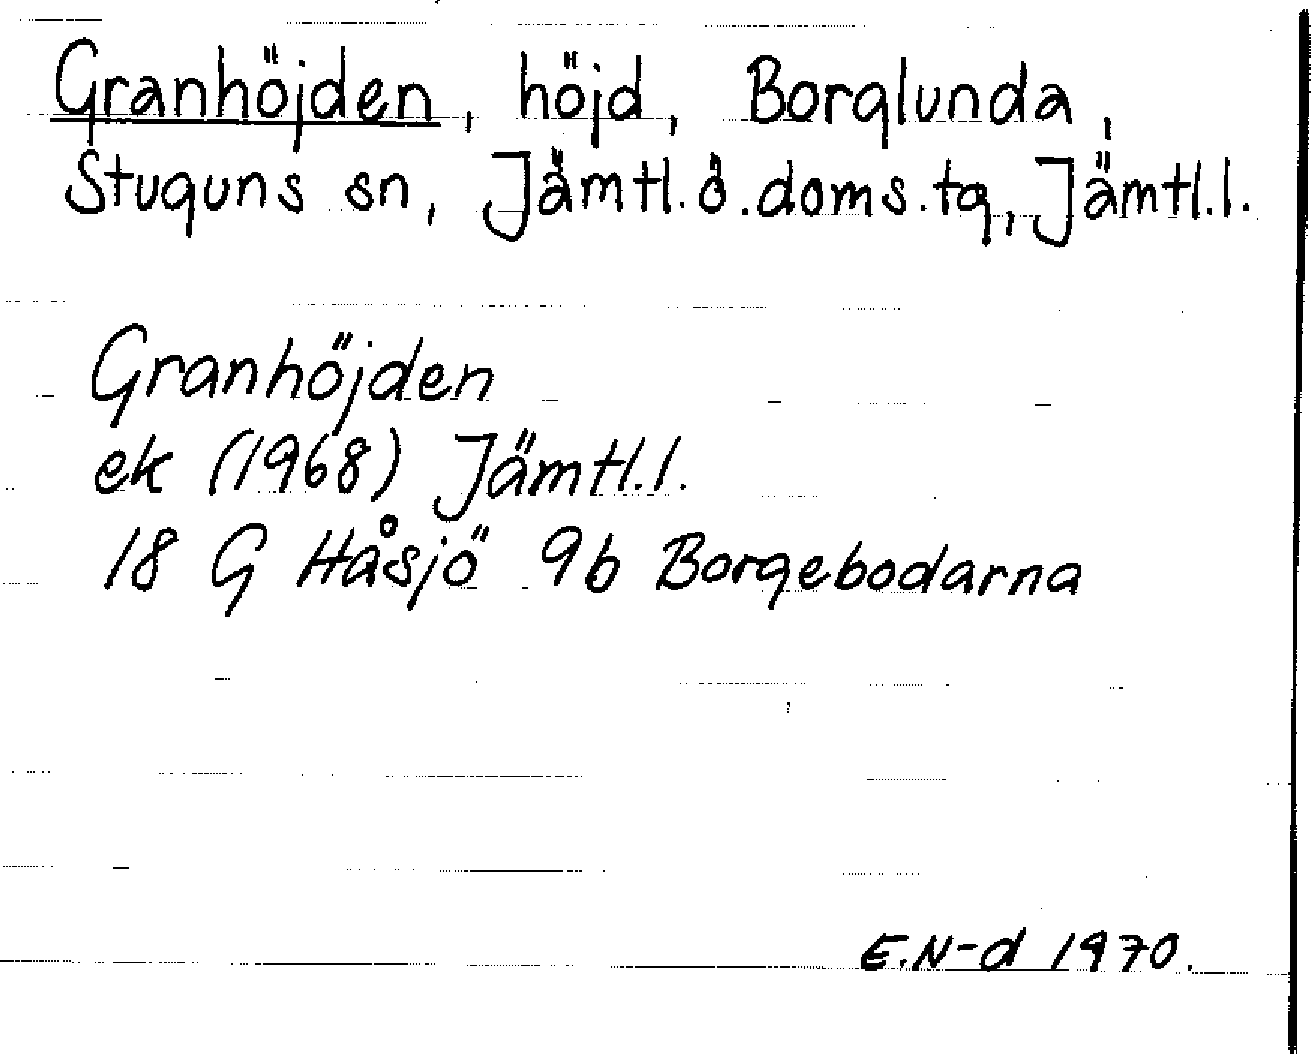 Granhöjden, höjd, Borglunda,
Stuguns sn, Jämtl.ö.doms.tg, Jämtl.l.
Granhöjden
ek (1968) Jämtl.l.
18 G Håsjö 9b Borgebodarna
E.N-d 1970.